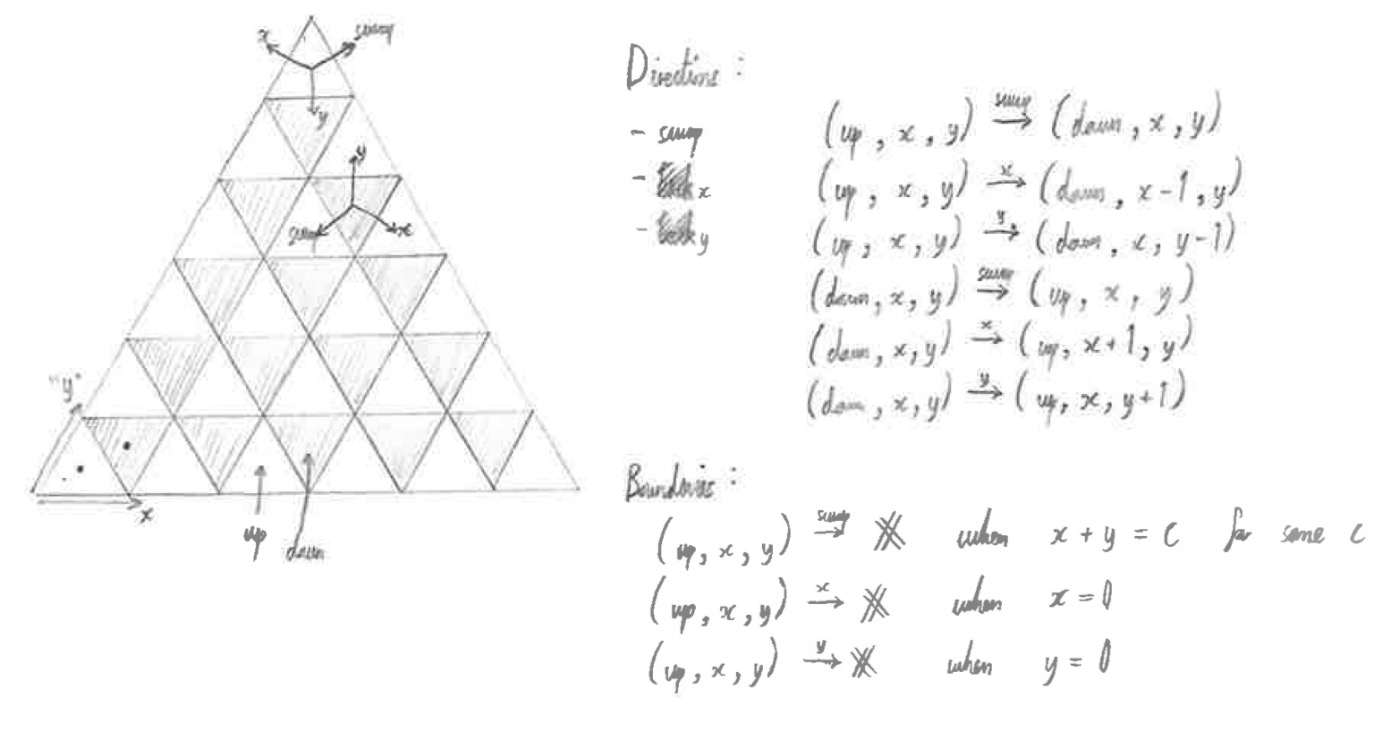 x swap
y
y
swap x
"y"
x
up down
Directions :
- swap
- x
- y
(up, x, y) swap→ (down, x, y)
(up, x, y) x→ (down, x-1, y)
(up, x, y) y→ (down, x, y-1)
(down, x, y) swap→ (up, x, y)
(down, x, y) x→ (up, x+1, y)
(down, x, y) y→ (up, x, y+1)
Boundaries :
(up, x, y) swap→ when x + y = c for some c
(up, x, y) x→ when x = 0
(up, x, y) y→ when y = 0